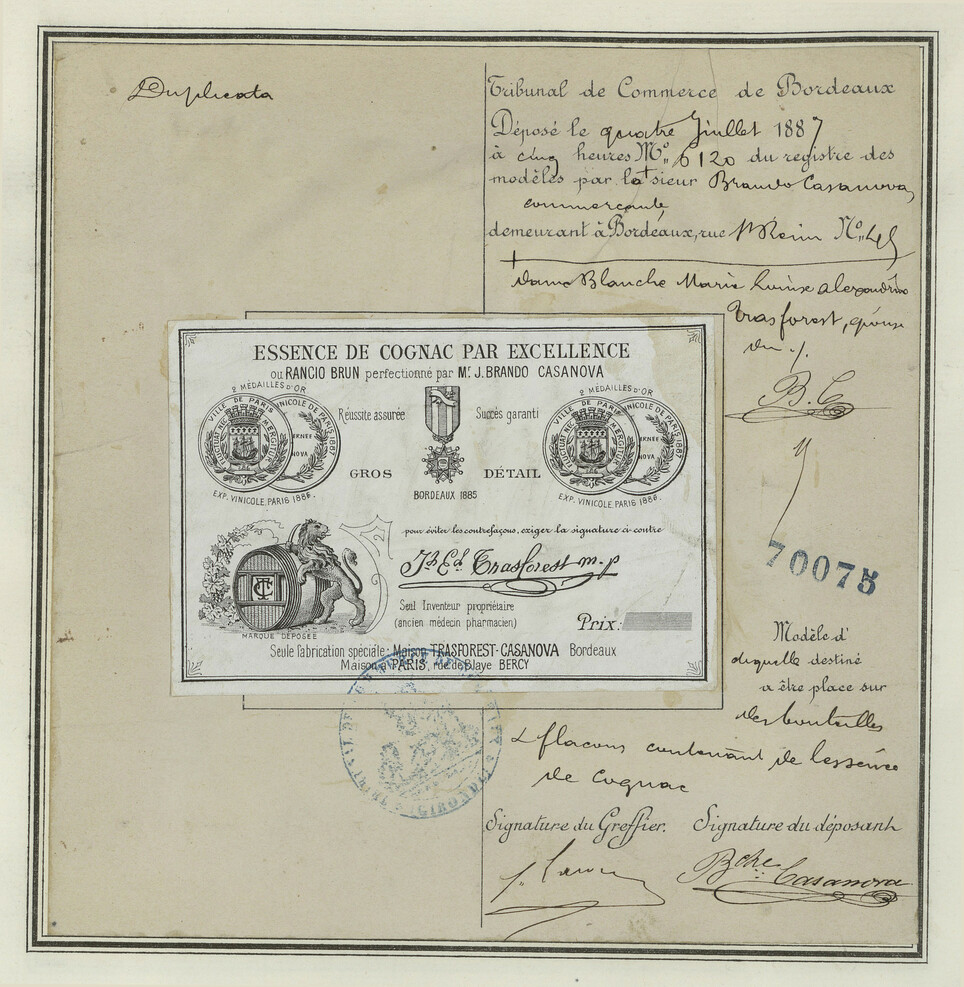 Duplicata
Tribunal de Commerce de Bordeaux
Déposé le quatre Juillet 1887
à cinq heures Nº 6120 du registre des
modèles par le sieur Brando Casanova,
commerçante
demeurant à Bordeaux, rue Nº 45
dame Blanche Marie Louise Alexandrine
Trasforest, épouse
du
B. C
ESSENCE DE COGNAC PAR EXCELLENCE
ou RANCIO BRUN perfectionné par Mr. J. BRANDO CASANOVA
2 MÉDAILLES D'OR
VILLE DE PARIS
FLUCTUAT NEC MERGITUR
VINICOLE DE PARIS 1887
ERNÉE
NOVA
EXP. VINICOLE PARIS 1886.
Réussite assurée
Succès garanti
GROS
DÉTAIL
BORDEAUX 1885
2 MÉDAILLES D'OR
VILLE DE PARIS
FLUCTUAT NEC MERGITUR
VINICOLE DE PARIS 1887
ERNÉE
NOVA
EXP. VINICOLE PARIS 1886.
pour éviter les contrefaçons, exiger la signature ci contre
Jh. Ed. Trasforest m. p
Seul Inventeur propriétaire
(ancien médecin pharmacien)
Prix:
TC
MARQUE DÉPOSÉE
Seule fabrication spéciale: Maison TRASFOREST-CASANOVA Bordeaux
Maison à PARIS, rue de Blaye BERCY
70075
Modèle d'
étiquette destiné
a être place sur
des bouteilles
& flacons contenant de l'essence
de Cognac
GIRONDE
Signature du Greffier. Signature du déposant
Bche Casanova